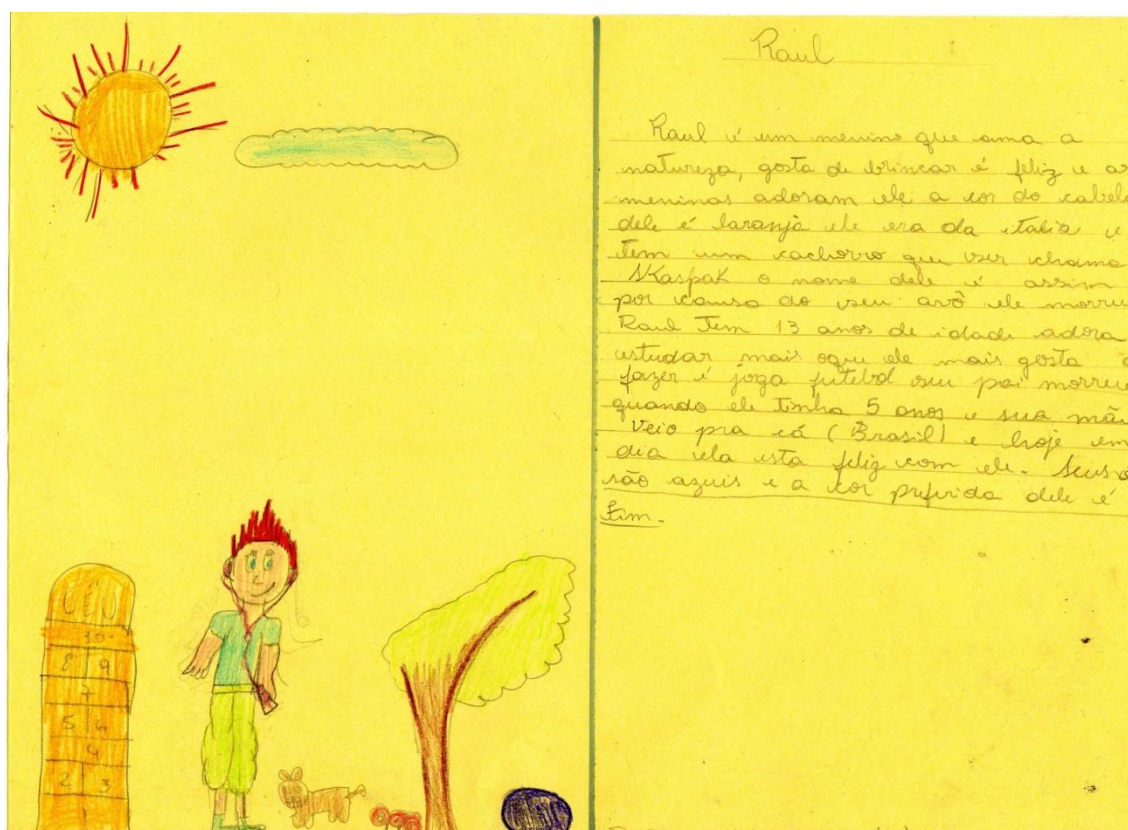 CÉU
10
8 9
7
5 6
4
2 3
1
Raul
Raul é um menino que ama a
natureza, gosta de brincar é feliz e as
meninas adoram ele a cor do cabelo
dele é laranja ele era da italia e
tem um cachorro que ser chama
SKaspaK o nome dele é assim
por causa do seu avô ele morreu
Raul Tem 13 anos de idade adora
estudar mais oque ele mais gosta
fazer é joga futebol seu pai morreu
quando ele Tinha 5 anos e sua mãe
Veio pra cá (Brasil) e hoje em
dia ela esta feliz com ele. Seus
são azuis e a cor preferida dele é
Fim.